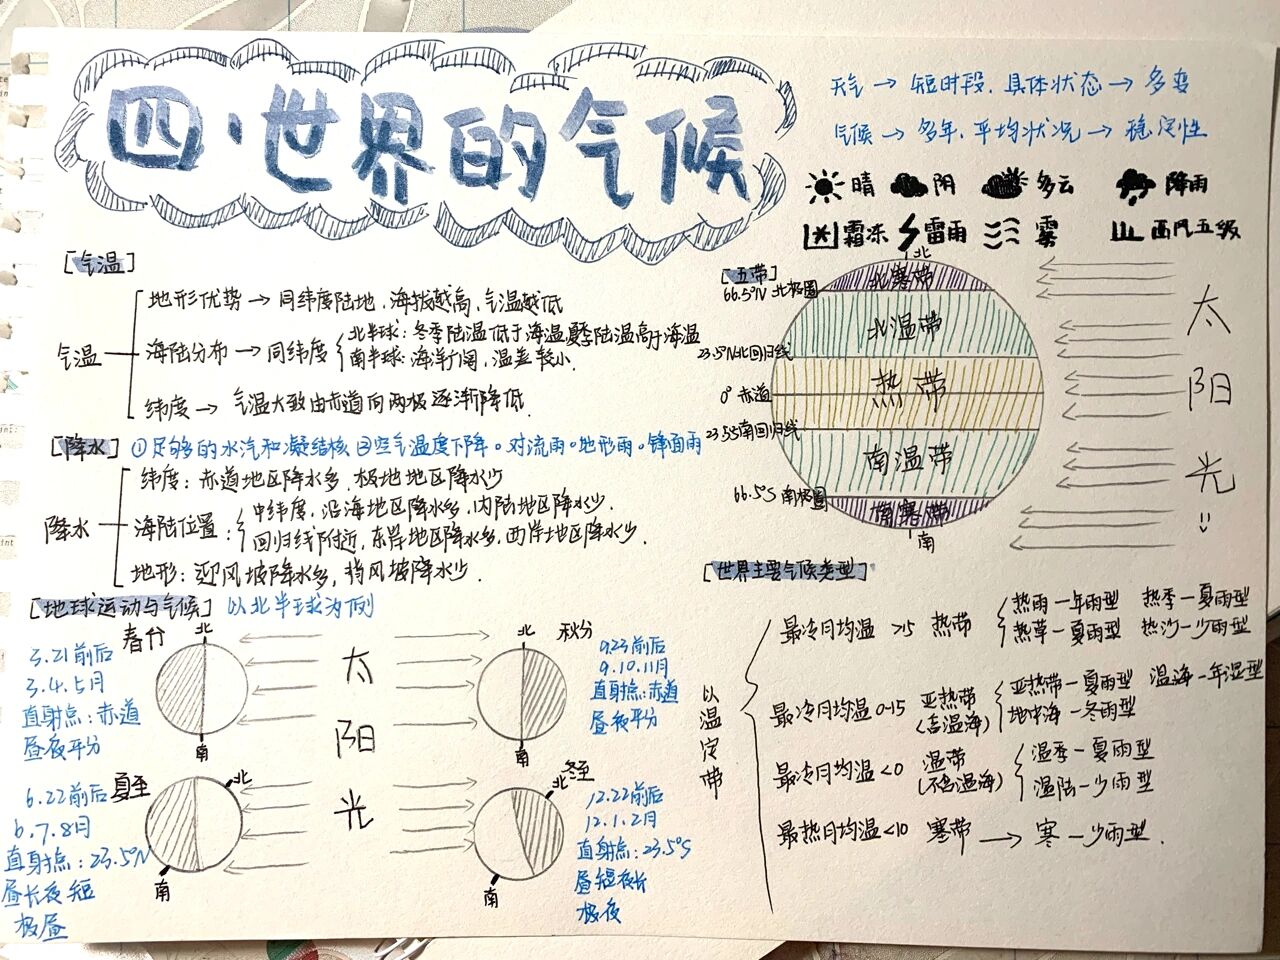 四·世界的气候
天气→短时段、具体状态→多变
气候→多年、平均状况→稳定性
晴 阴 多云 降雨
霜冻 雷雨 雾 西风五级
[气温]
气温
地形优势→同纬度陆地,海拔越高,气温越低
海陆分布→同纬度
北半球:冬季陆温低于海温 夏季陆温高于海温
南半球:海洋广阔,温差较小.
纬度→气温大致由赤道向两极逐渐降低.
[降水] ①足够的水汽和凝结核②空气温度下降。对流雨。地形雨。锋面雨
降水
纬度:赤道地区降水多.极地地区降水少
海陆位置:
中纬度,沿海地区降水多,内陆地区降水少.
回归线附近,东岸地区降水多,西岸地区降水少.
地形:迎风坡降水多,背风坡降水少.
[地球运动与气候] 以北半球为例
春分
3.21前后
3.4.5月
直射点:赤道
昼夜平分
北
南
太阳光
秋分
9.23前后
9.10.11月
直射点:赤道
昼夜平分
北
南
夏至
6.22前后
6.7.8月
直射点:23.5°N
昼长夜短
极昼
北
南
冬至
12.22前后
12.1.2月
直射点:23.5°S
昼短夜长
极夜
北
南
[五带]
北
66.5°N 北极圈
23.5°N北回归线
0° 赤道
23.5S南回归线
66.5°S 南极圈
南
北寒带
北温带
热带
南温带
南寒带
太阳光
[世界主要气候类型]
以温定带
最冷月均温 >15 热带
热雨—年雨型 热季—夏雨型
热草—夏雨型 热沙—少雨型
最冷月均温0-15 亚热带
(含温海)
亚热带—夏雨型 温海—年湿型
地中海—冬雨型
最冷月均温<0 温带
(不含温海)
温季—夏雨型
温陆—少雨型
最热月均温<10 寒带→寒—少雨型.